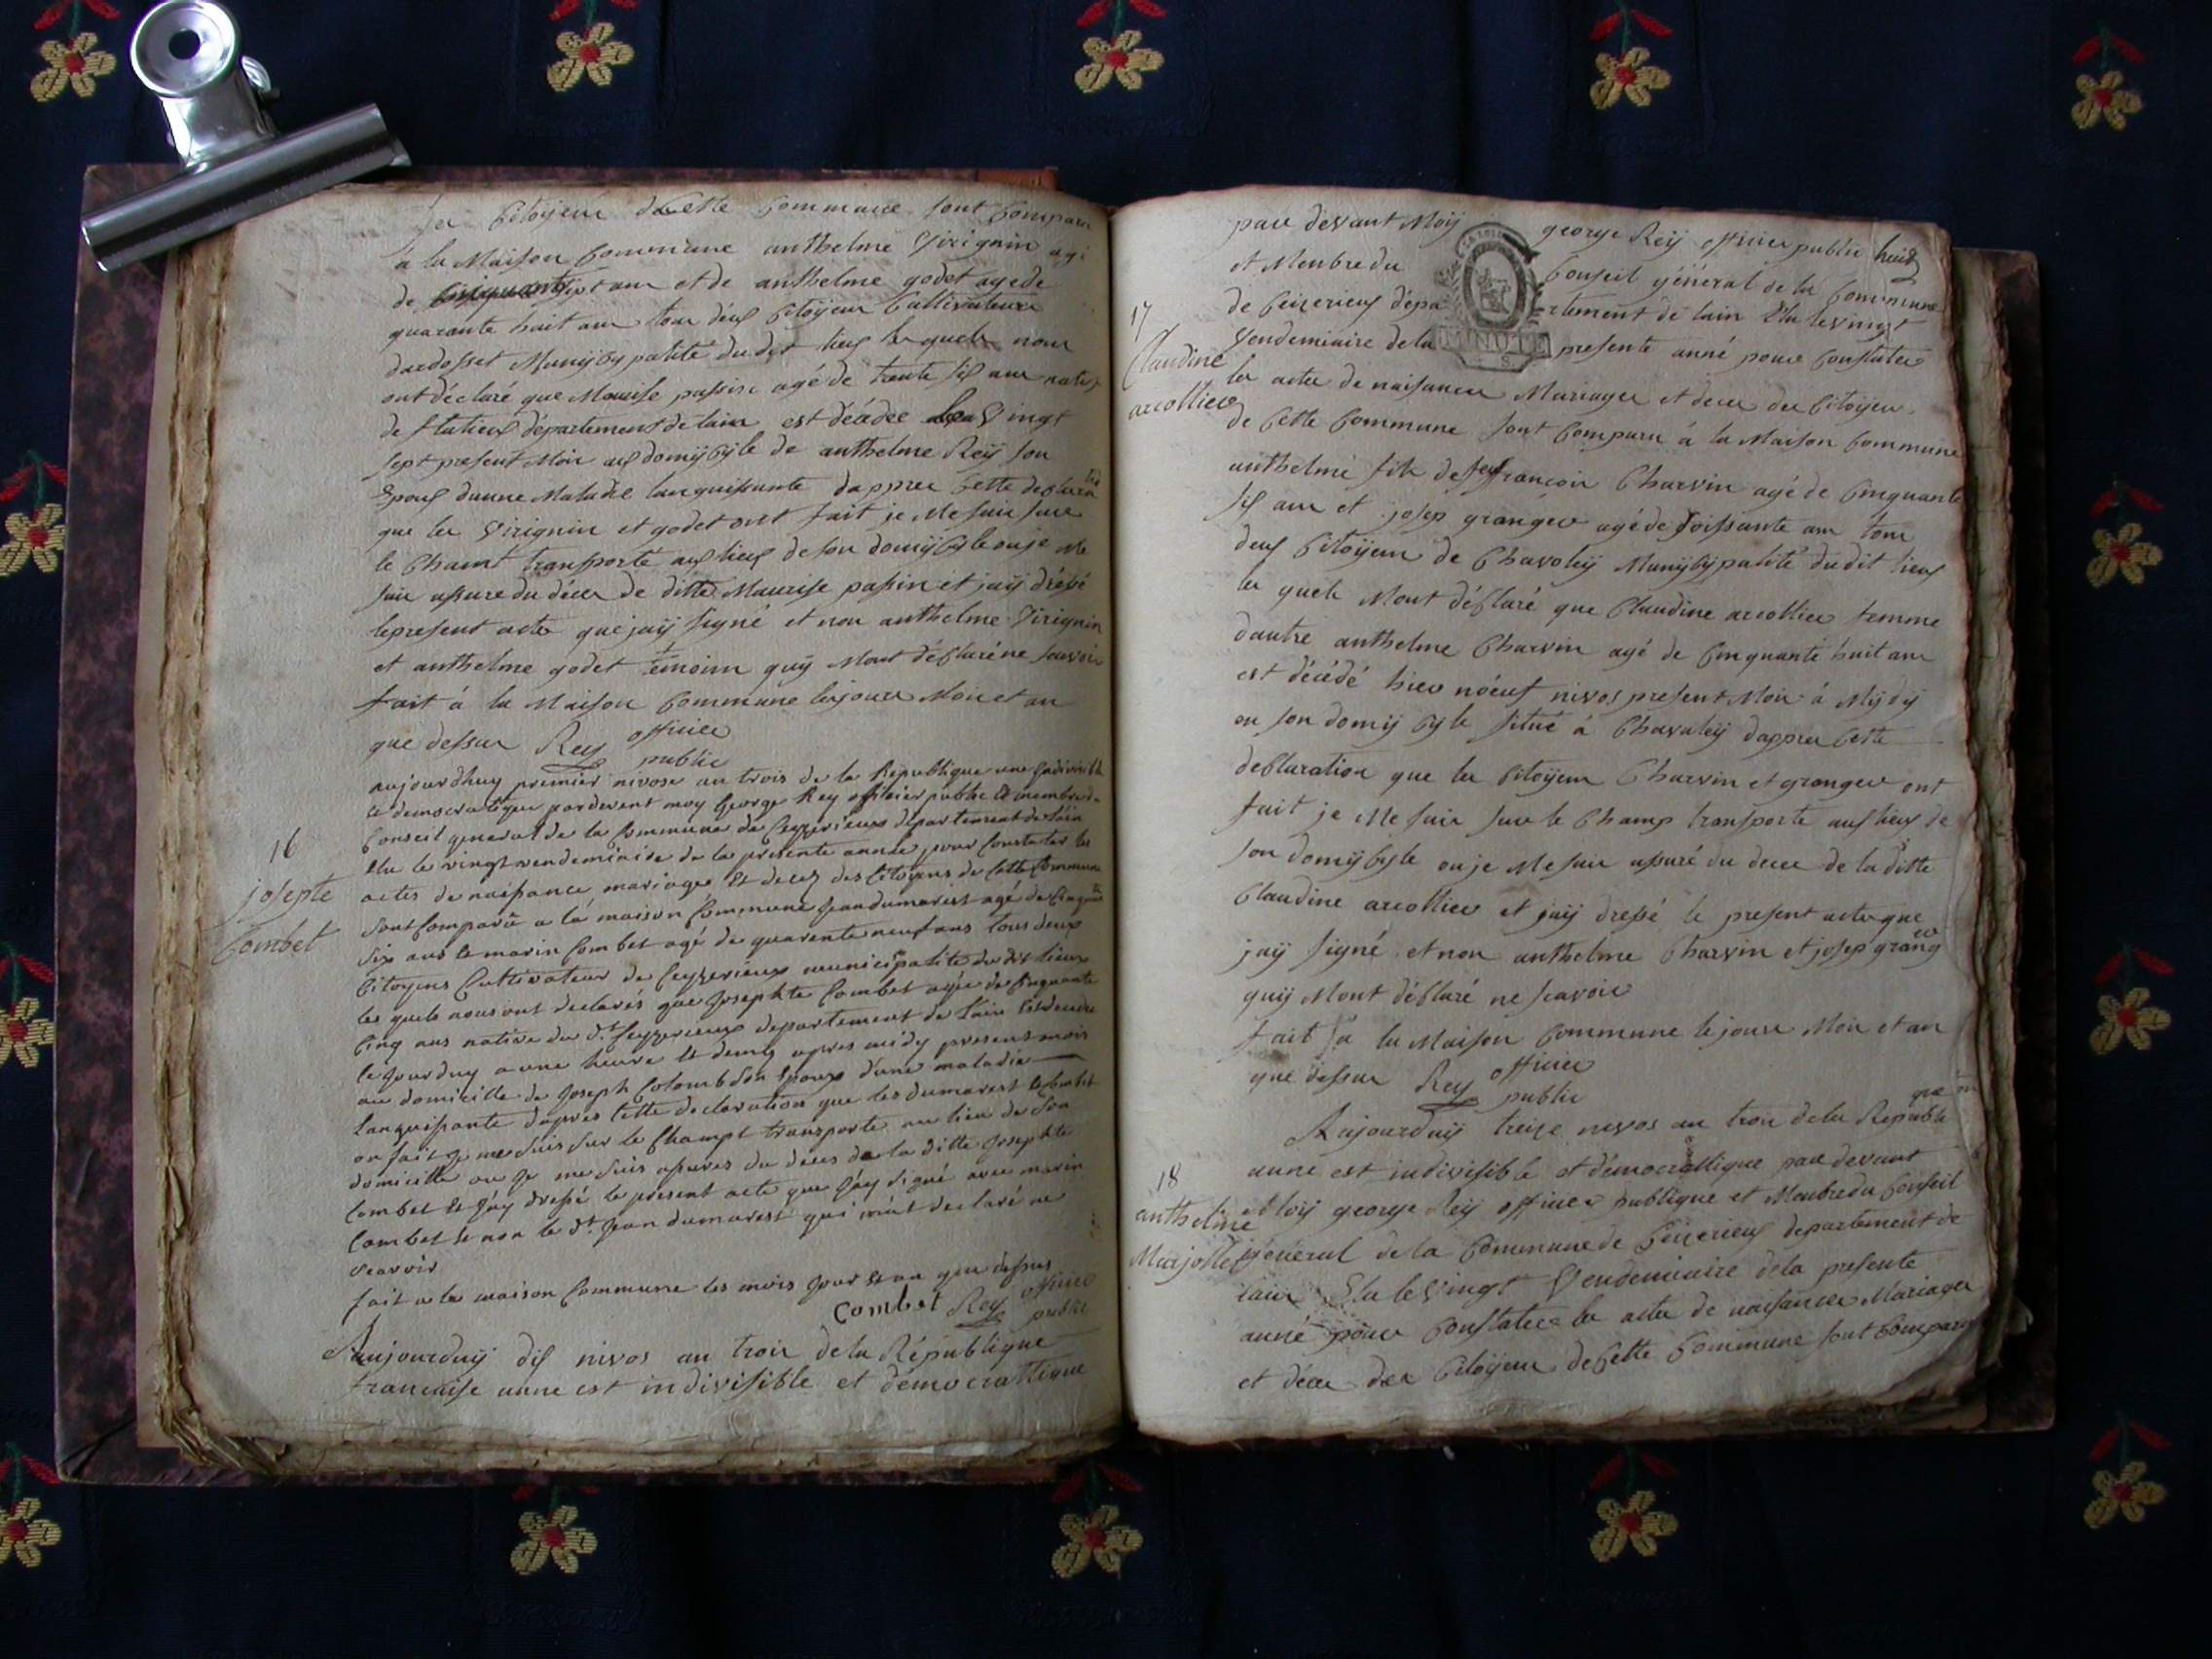 les Citoyens de Cette Commune sont Comparu
a la Maison Commune anthelme Virignin agé
de ans et de anthelme godet agé de
quarante huit ans tous deux Citoyens Cultivateurs
dardosset Munijcypalité dudit lieux les quels nous
ont déclaré que Maurise passin agé de trente six ans native
de département de lain est décédée le Vingt
sept present Mois aux domijcyle de anthelme Reÿ son
Epoux dunne Maladie languissante dappres Cette déclaration
que les Virignin et godet ont fait je Me suis sure
le Champt transporté aux lieux de son domijcyle ou je Me
suis assure du déces de ditte Maurise passin et jaÿ dréssé
le present acte que jaÿ signé et non anthelme Virignin
et anthelme godet témoins quÿ Mont déclaré ne savoir
fait à la Maison Commune les jours Mois et an
que dessus Rey officier
public
16
josepte
Combet
aujourdhuy premier nivose an trois de la Republique une Indivisible
et democratique pardevent moy George Rey officier public et membre du
Conseil general de la Commune de Ceyzerieux departement de lain
elu le vingt vendemiaire de la presente année pour Constater les
actes de naissance mariages et deces des Citoyens de Cette Commune
sont Comparû a la maison Commune Jean dumarest agé de Cinquante
six ans et marin Combet agé de quarente neuf ans tous deux
Citoyens Cultivateur de Ceyzerieux municipalité du dit lieux
les quels nous ont declarés que Josephte Combet agée de Cinquante
Cinq ans native du dt. Ceyzerieux departement de lain est decedée
ce jourduy a une heure et demy apres midy present mois
au domicille de Joseph Colomb son Epoux dune maladie
languissante dapres Cette declaration que les dumarest et Combet
on fait je me suis sur le Champt transporté au lieu de son
domicille ou je me suis assures du déces de la ditte Josephte
Combet et jay dressé le present acte que jay signé avec marin
Combet et non le dt. Jean dumarest qui m'at declaré ne
scavoir
fait a la maison Commune les mois jour et an que dessus
Combet Rey officier
public
Aujourduÿ dix nivos an trois de la République
francaise unne est indivisible et démocrattique
pare devant Moÿ george Reÿ officier public
et Menbre du Conseil général de la Commune
de Ceizerieux département de lain Elu le vingt
Vendemiaire de la presente anné poure Constater
MINUTE
17
Claudine
arcollier
les actes de naissances Mariages et deces des Citoÿens
de Cette Commune sont Comparu à la Maison Commune
anthelme fils de feu francois Charvin agé de Cinquante
six ans et josep granger agé de soissante ans tous
deux Citoÿens de Chavoleÿ Munijcypalité dudit lieux
les quels Mont déclaré que Claudine arcollier femme
dautre anthelme Charvin agé de Cinquante huit ans
est décédé hier nœuf nivos present Mois à Mijdy
en son domijcyle situé à Chavoleÿ dappres Cette
declaration que les Citoÿens Charvin et granger ont
fait je Me suis sure le Champ transporté aux lieux de
son domijcyle ou je Me suis assuré du deces de la ditte
Claudine arcollier et jaÿ dressé le present acte que
jaÿ signé et non anthelme Charvin et josep granger
quÿ Mont déclaré ne scavoir
fait à la Maison Commune le joure Mois et an
que dessus Rey officier
public
18
anthelme
Aujourduÿ treize nivos an trois de la Republique
unne est indivisible et démocrattique pare devant
Moÿ george Reÿ officier publique et Menbre du Conseil
général de la Commune de Ceizerieux departement de
lain Elu le Vingt Vendemiaire de la presente
anné poure Constater les actes de naissances Mariages
et déces des Citoÿens de Cette Commune sont Comparu